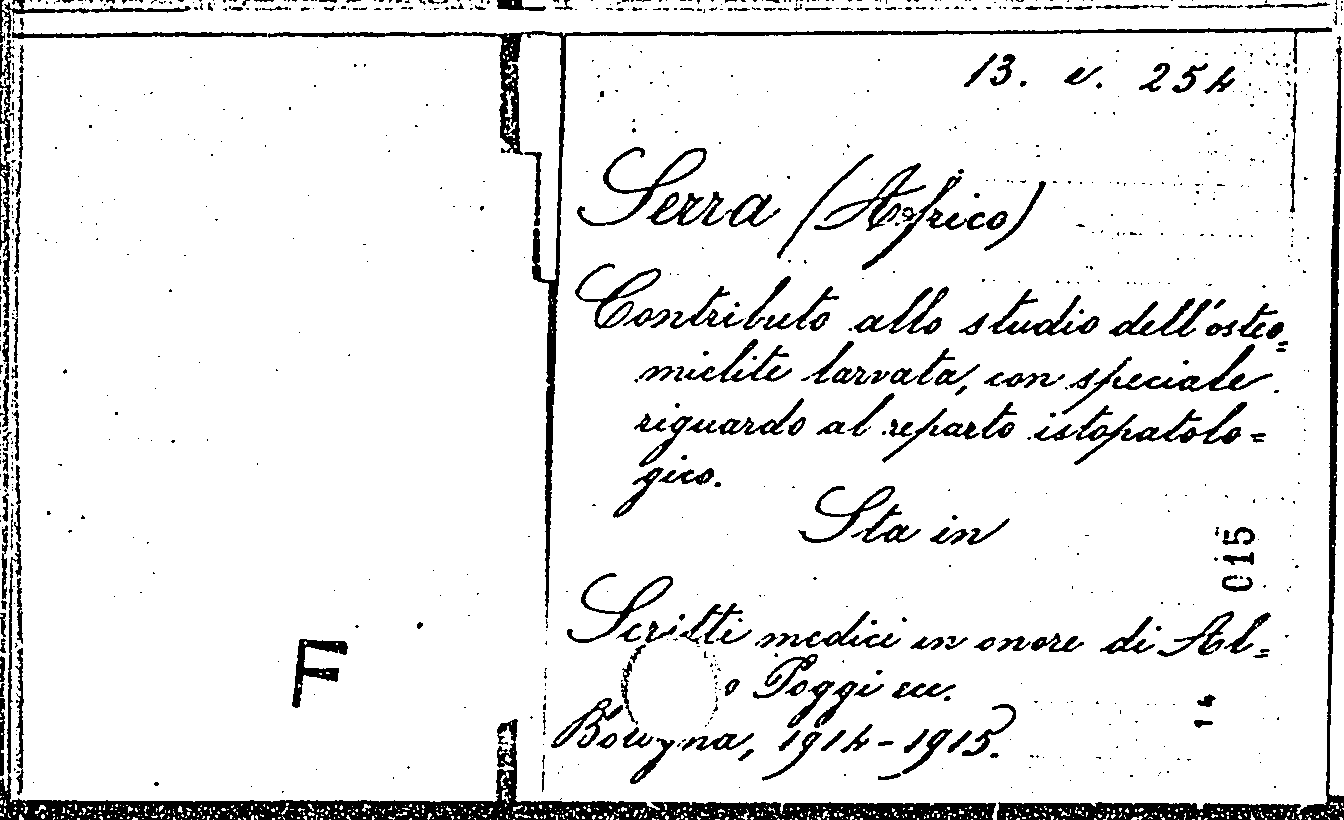 13. v. 254
Serra (Africo)
Contributo allo studio dell'osteo=
mielite larvata, con speciale
riguardo al reparto istopatolo=
gico.
Sta in
Scritti medici in onore di Al=
o Poggi ecc.
Bologna, 1914-1915.
015
14
F